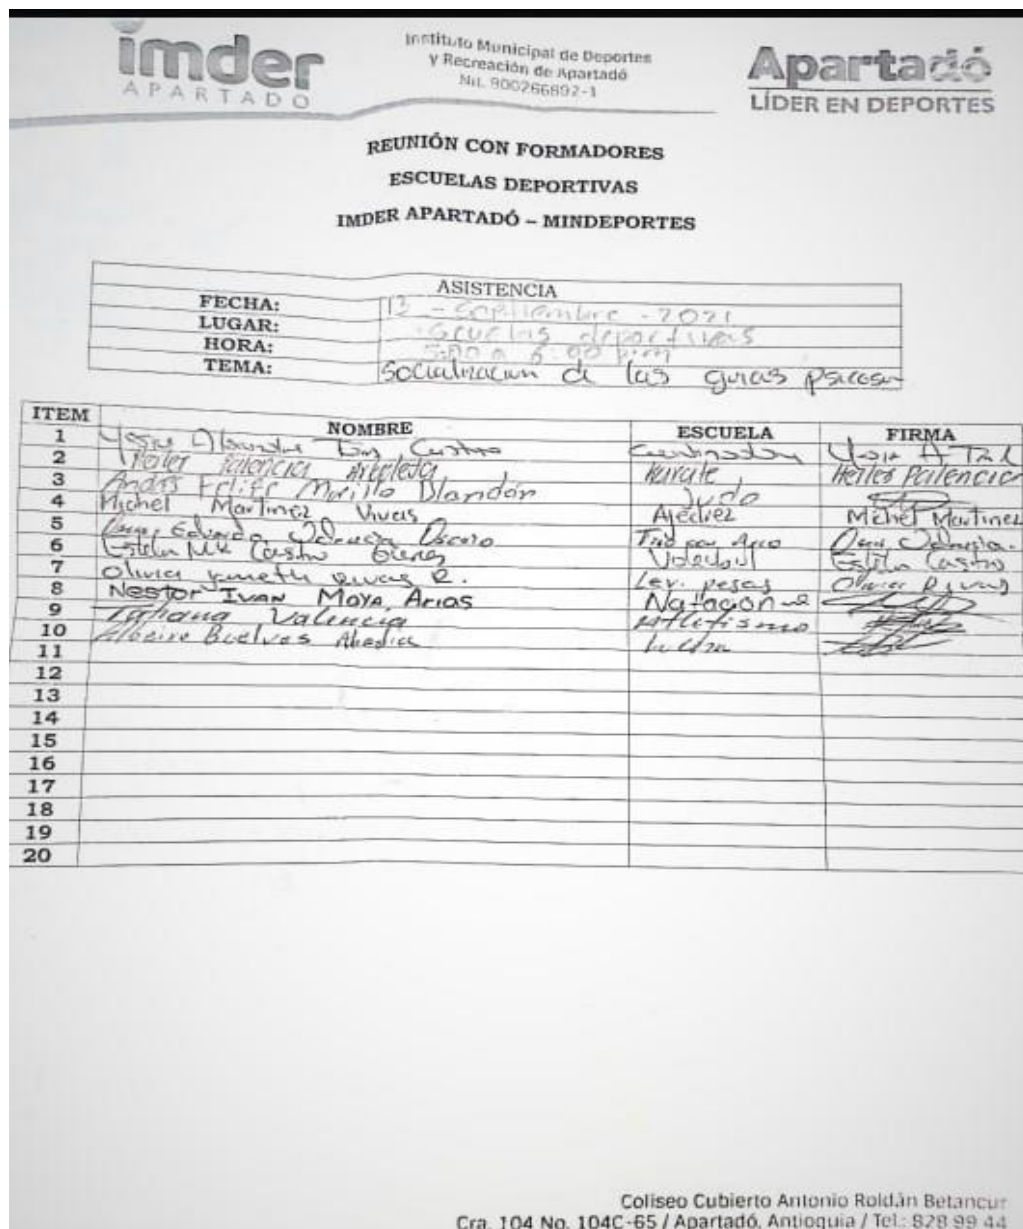 imder
APARTADO
Instituto Municipal de Deportes
y Recreación de Apartadó
Nit. 900266892-1
Apartadó
LÍDER EN DEPORTES
REUNIÓN CON FORMADORES
ESCUELAS DEPORTIVAS
IMDER APARTADÓ – MINDEPORTES
ASISTENCIA
FECHA: 13 - Septiembre - 2021
LUGAR: Escuelas deportivas
HORA: 5:00 a 6:00 p.m
TEMA: Socializacion de las guias psicoso
ITEM NOMBRE ESCUELA FIRMA
1 Castro
2 Palencia Arboleda Karate Heiler Palencia
3 Andrés Felipe Murillo Blandón Judo
4 Michel Martinez Vivas Ajedrez Michel Martinez
5 Valencia Tiro con Arco
6 Castro Voleibol Castro
7 Olivia Yaneth Rivas R. Lev. pesas Olivia Rivas
8 Nestor IVAN MOYA Arias Natación
9 Tatiana Valencia Atletismo
10 Buelvas Abadia Lucha
11
12
13
14
15
16
17
18
19
20
Coliseo Cubierto Antonio Roldán Betancur
Cra. 104 No. 104C-65 / Apartadó, Antioquia / Tel.: 828 99 44